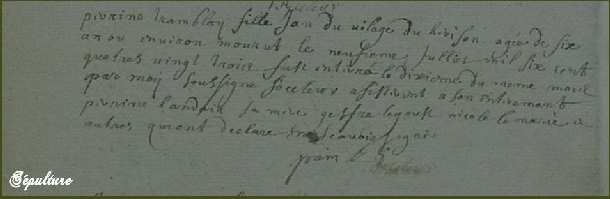 perrine tramblay fille Jan du vilage du hinson agée de six
an ou environ mourut le neufieme Julliet mil six cent
quatres vingt trois fust enterré le dixieme du meme mois
par moy soussigné assisterent a son enterrement
perrine landais sa mere le goust nicole le et
autres qui ont declare ne scavoir signe
Sépulture